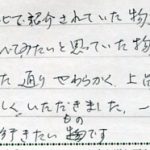 ビで紹介されていた物
べてみたいと思っていた物
た通りやわらかく、上品
しくいただきました。一
もの
行きたい物です